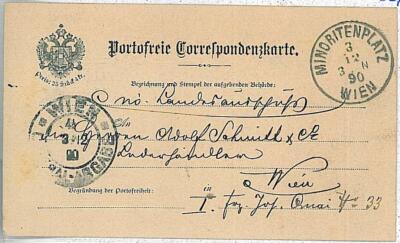 Portofreie Correspondenzkarte.
Preis: 25 Stück 4 kr.
MINORITENPLATZ
3
12
3 N
90
WIEN
Bezeichnung und Stempel der aufgebenden Behörde:
nö. Landesausschuß
An
Herren Adolf Schmidt & Cie
Lederhändler
Wien
Begründung der Portofreiheit:
I. Frz. Jos. Quai No 33
WIEN
3 12
90